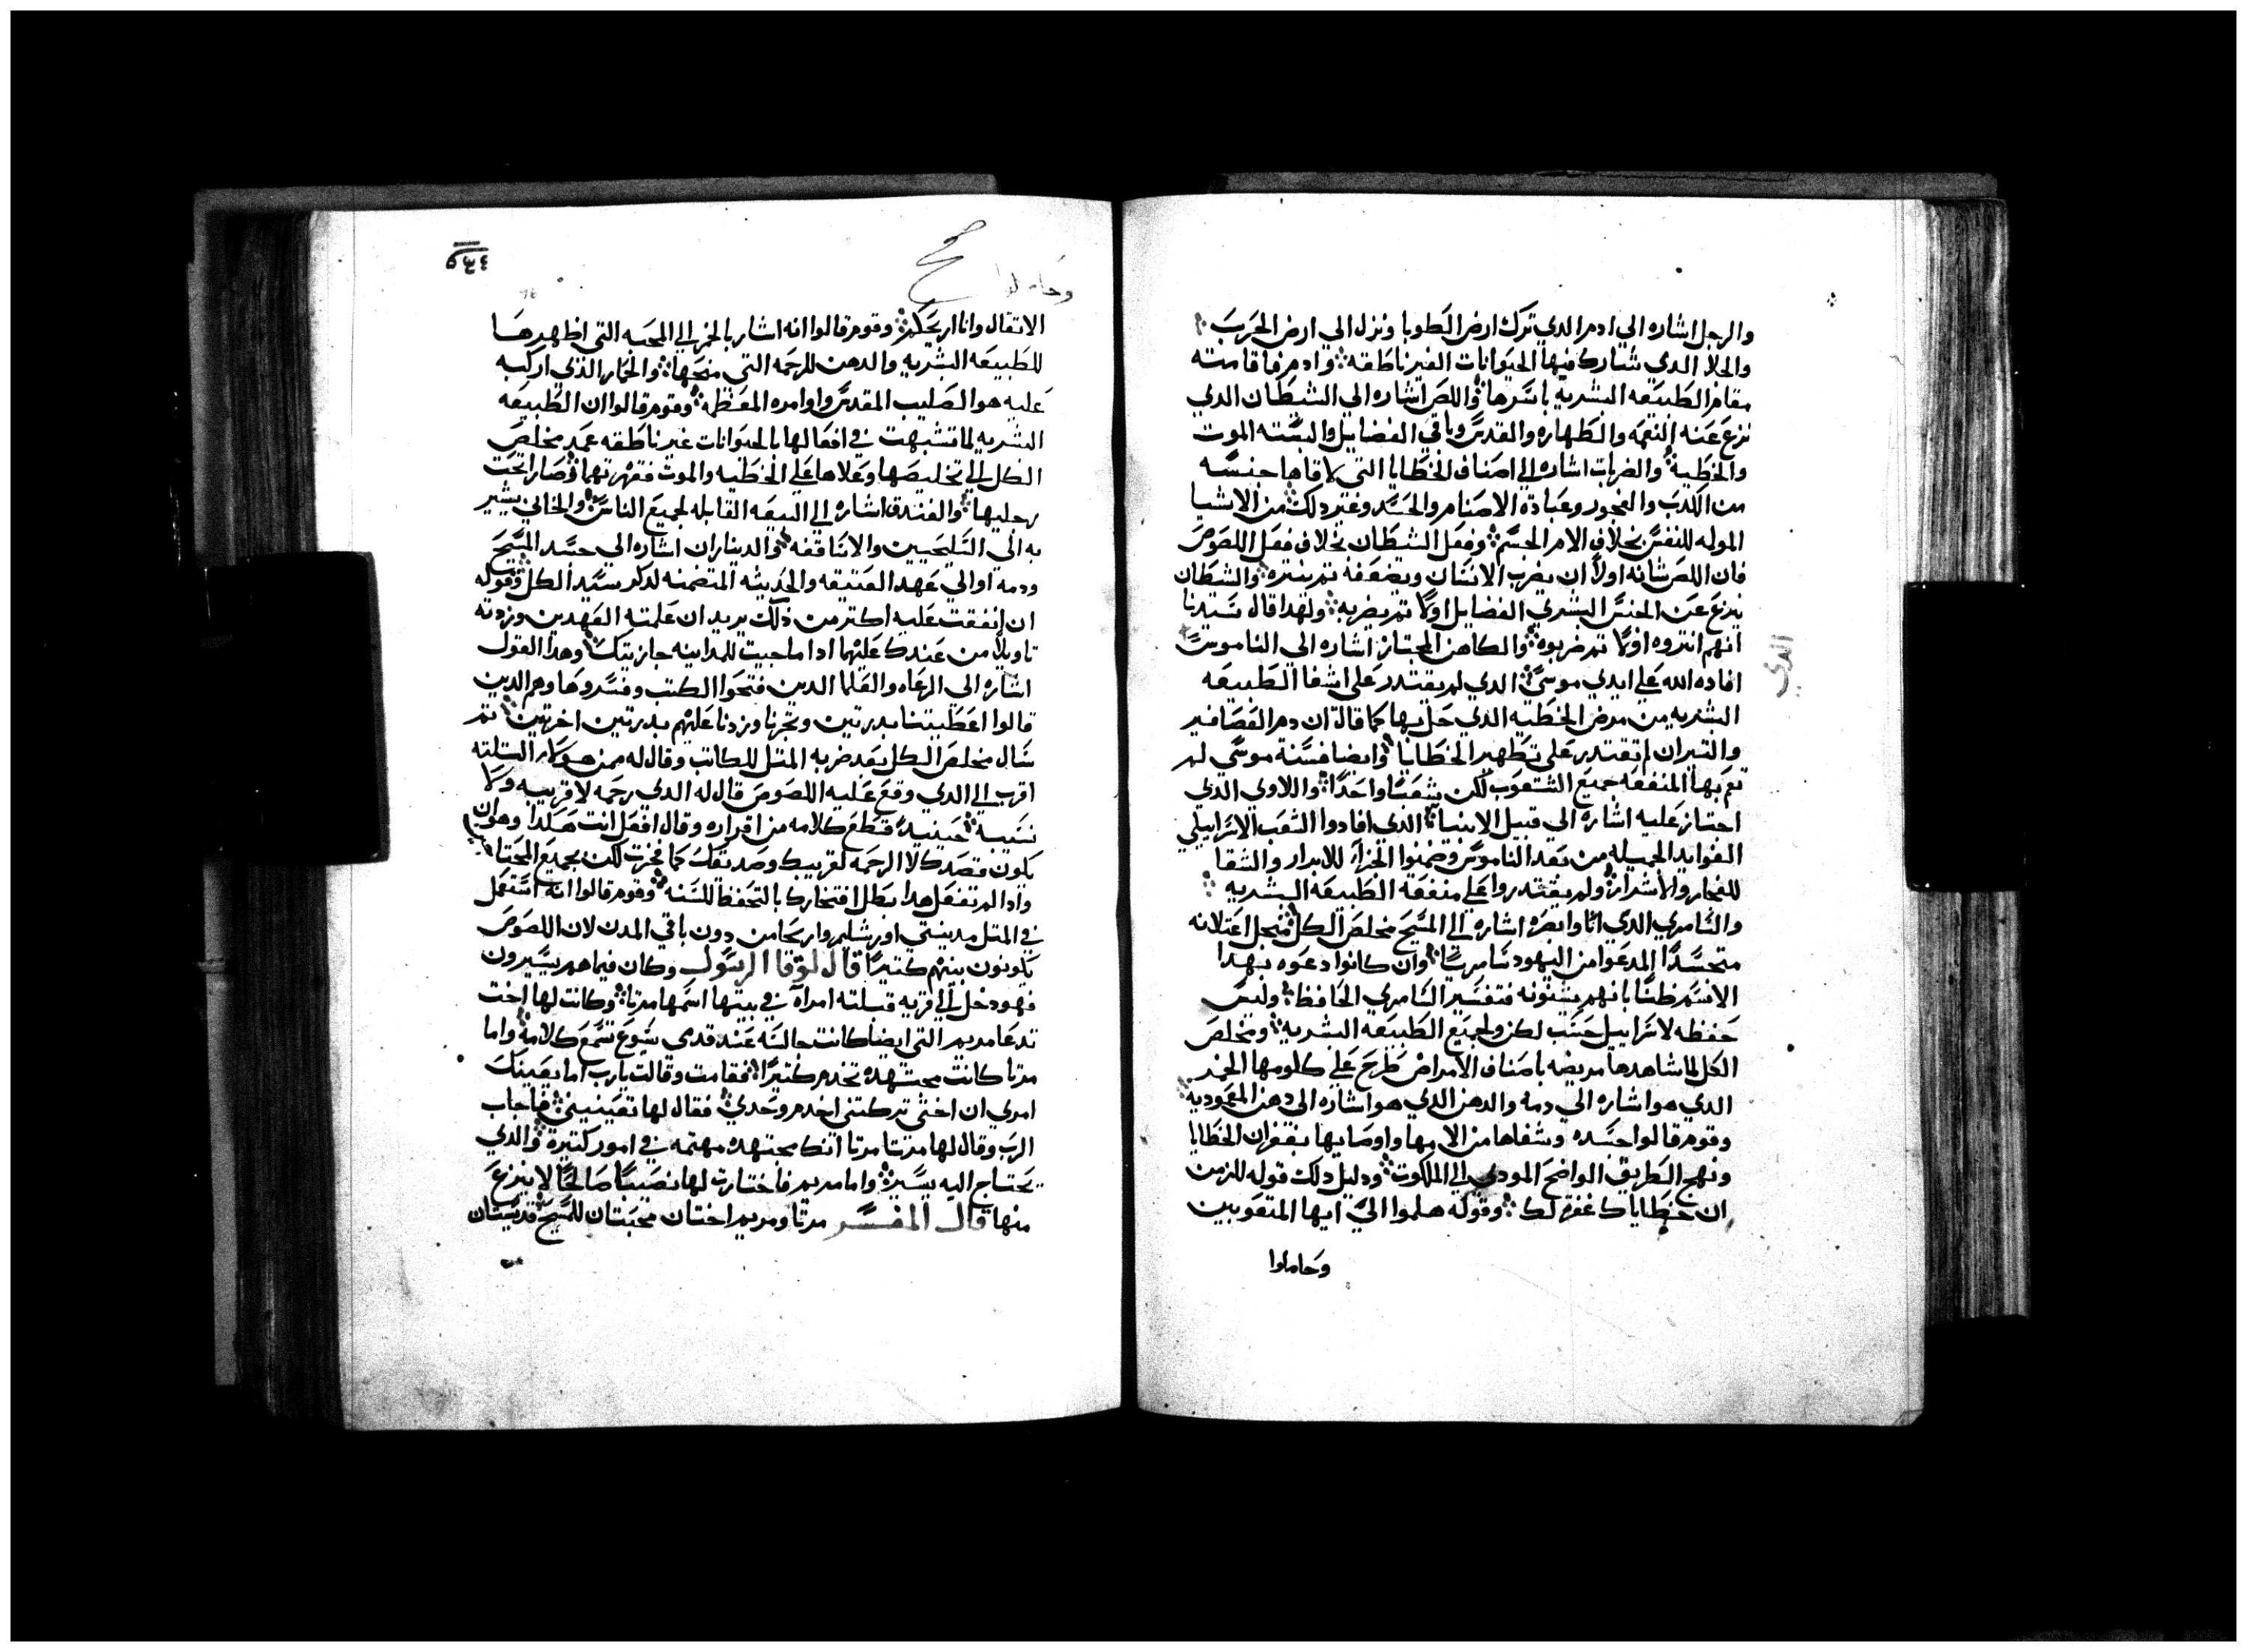 والرجل اشاره الي ادم الدي ترك ارض الطوبا ونزل الي ارض الخرب
والخلا الدي شارك فيها الحيوانات الغير ناطقه وادم فاقامته
مقام الطبيعه البشريه باسرها واللص اشاره الي الشيطان الدي
نزع عنه النعمه والطهاره والقدس وباقي الفضايل والبسته الموت
والخطيه والضربات اشاره الي اصناف الخطايا التي لاقاها جنسه
من الكدب والفجور وعبادة الاصنام والحسد وغير دلك من الاشيا
الموله للنفس بخلاف الامر الجسم وفعل الشيطان بخلاف فعل اللصوص
فان اللص شانه اولا ان يضرب الانسان ويضعفه تم يسره والشيطان
ينزع عن الجنس البشري الفضايل اولا تم يضربه ولهدا قال سيدنا
انهم انتروه اولا تم ضربوه والكاهن المجتاز اشاره الي الناموس
الدي
افاده الله علي ايدي موسي الدي لم يقتدر علي اشفا الطبيعه
البشريه من مرض الخطيه الدي حل بها كما قال ان دم العصافير
والتيران لم تقتدر علي تطهير الخطايا وايضا فسنة موسي لم
تعم بها المنفعه جميع الشعوب لكن شعبا واحدا واللاوي الدي
اجتاز عليه اشاره الي قبيل الانبيا الدي افادوا الشعب الاسراييلي
الفوايد الجميله من بعد الناموس وضمنوا الجزا للابرار والشقا
للفجار والاشرار ولم يقتدروا علي منفعة الطبيعه البشريه
والسامري الدي اتا وابصره اشاره الي المسيح مخلص الكل فنجل اعتلانه
متجسدا المدعوا من اليهود سامريا وان كانوا دعوه بهدا
الاسم ظنا بانهم يشنونه فتفسير السامري الحافظ وليس
حفظه لاسراييل حسب لكن ولجميع الطبيعه البشريه ومخلص
الكل لما شاهدها مريضه باصناف الامراض طرح علي كلومها الخمر
الدي هو اشاره الي دمه والدهن الدي هو اشاره الي دهن المعموديه
وقوم قالوا جسده وشفاها من الامها واوصابها بغفران الخطايا
ونهج الطريق الواضح المودي الي الملكوت ودليل دلك قوله للزمن
ان خطاياك غفرة لك وقوله هلموا الي ايها المتعوبين
وحاملوا
٥٣٤
صح
وحاملوا
الاتقال وانا اريحكم وقوم قالوا انه اشار بالخمر الي المحبه التي اظهرها
للطبيعه البشريه والدهن للرحمه التي منحها والحمار الدي اركبه
عليه هو الصليب المقدس واوامره المعظمه وقوم قالوا ان الطبيعه
البشريه لما تشبهت في افعالها بالحيوانات غير ناطقه عمد مخلص
الكل الي تخليصها وعلاها علي الخطيه والموت فقهرتهما وصارا تحت
رجليها والفندق اشاره الي البيعه القابله لجميع الناس والخاني يشير
به الي السليحيين والاساقفه والديناران اشاره الي جسد المسيح
ودمه او الي عهد العتيقه والحديثه المتضمنه لدكر سيد الكل وقوله
ان انفقت عليه اكتر من دلك يريد ان علمته العهدين وزدته
تاويلا من عندك عليهما ادا ما جيت للمداينه جازيتك وهدا القول
اشاره الي الرعاه والعلما الدين فتحوا الكتب وفسروها وهم الدين
قالوا اعطيتنا بدرتين وتجرنا وزدنا عليهم بدرتين اخرتين تم
سال مخلص الكل بعد ضربه المتل للكاتب وقال له ممن هولام التلته
اقرب الي الدي وقع عليه اللصوص قال له الدي رحمه لا قريبه ولا
نسيبه حينيد قطع كلامه من اقراره وقال افعل انت هكدا وهو ان
يكون قصدك الا الرحمه لقريبك وصديقك كما فخرت لكن بجميع المحتاجين
وادا لم تفعل هدا بطل افتخارك بالتحفظ للسنه وقوم قالوا انه استعمل
في المتل مدينتي اورشليم واريحا من دون باقي المدن لان اللصوص
يكونون بينهم كتيرا قال لوقا الرسول وكان فيما هم يسيرون
فهو دخل الي قريه قبلته امراه في بيتها اسمها مرتا وكانت لها اخت
تدعا مريم التي ايضا كانت جالسه عند قدمي يسوع تسمع كلامه واما
مرتا كانت مجتهده تخدم كتيرا فقامت وقالت يارب اما يعينك
امري ان اختي تركتني اخدم وحدي فقال لها تعينيني فاجاب
الرب وقال لها مرتا مرتا انك مجتهده مهتمه في امور كتيره والدي
يحتاج اليه يسير واما مريم فاختارت لها نصيبا صالحا لا ينزع
منها قال المفسر مرتا ومريم اختان محبتان للمسيح قديستان